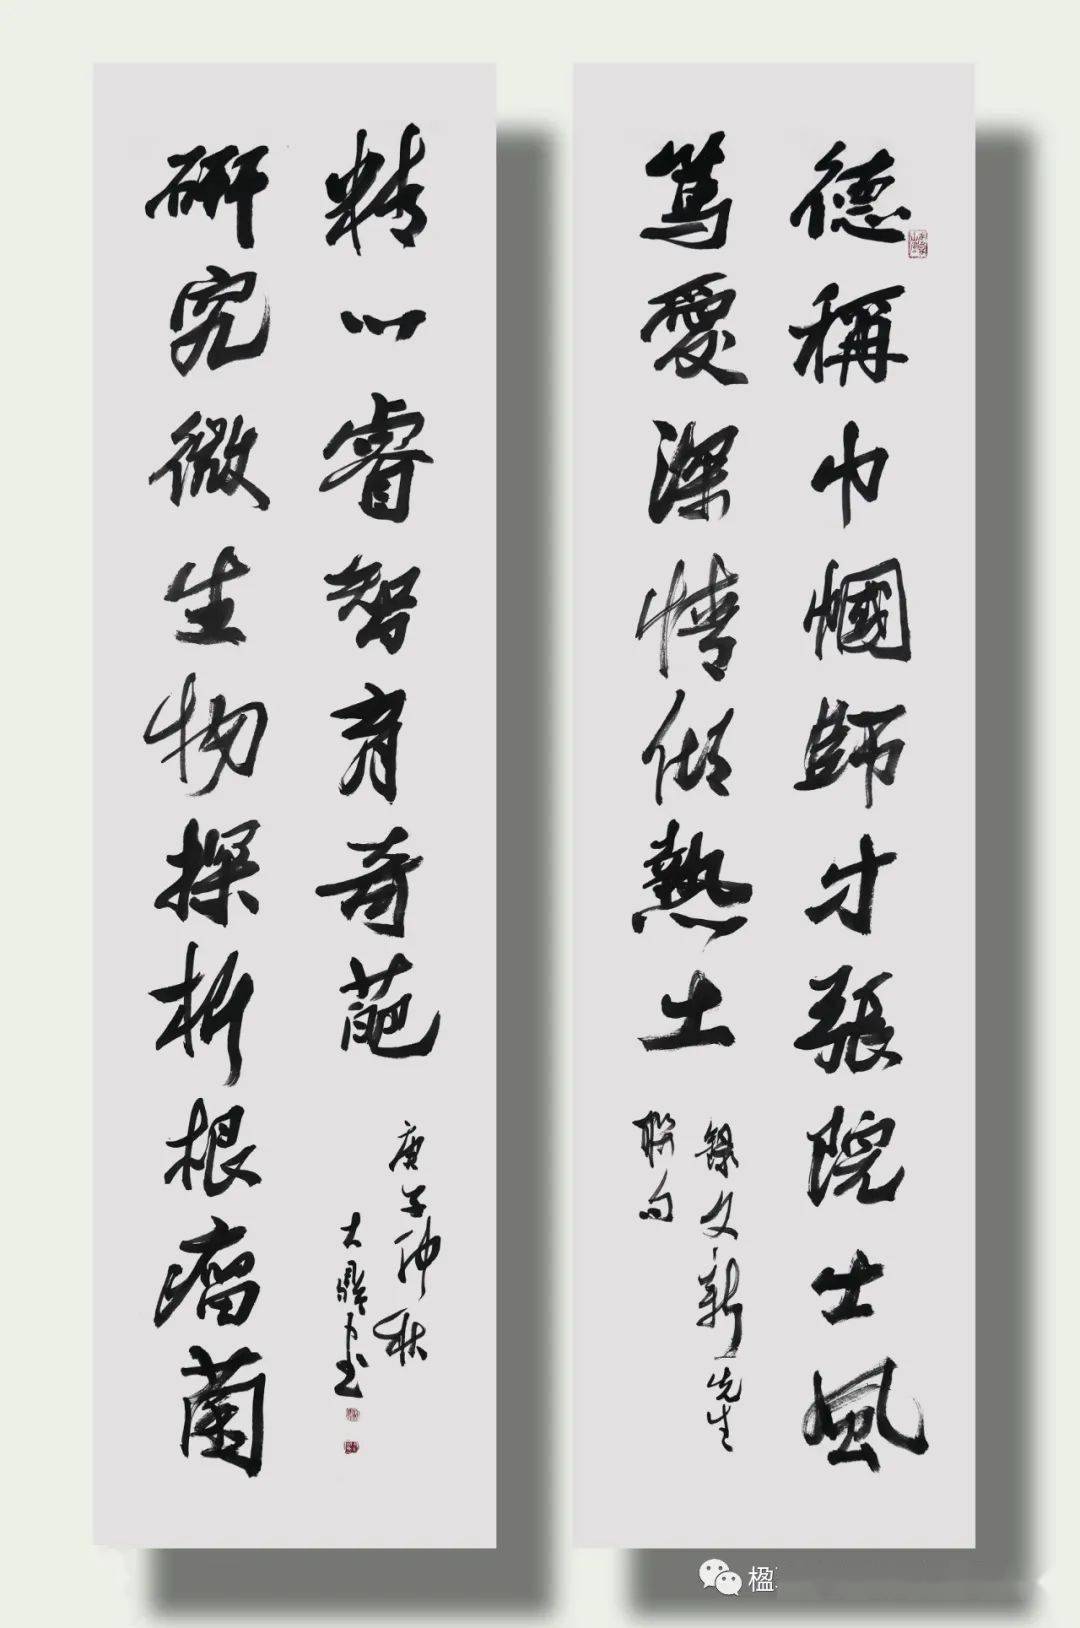 德稱巾幗師才張院士風
篤愛深情傾熱土
錄文新先生
聯句
研究微生物探析根瘤菌
精心睿智育奇葩
庚子仲秋
大書
楹